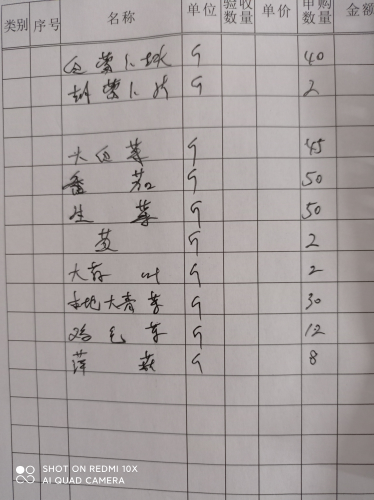 类别 序号 名称 单位 验收数量 单价 申购数量 金额
白萝卜 斤 40
胡萝卜 斤 2
大白菜 斤 45
番茄 斤 50
生菜 斤 50
斤 2
大 叶 斤 2
本地大青菜 斤 30
鸡毛菜 斤 12
斤 8
SHOT ON REDMI 10X
AI QUAD CAMERA